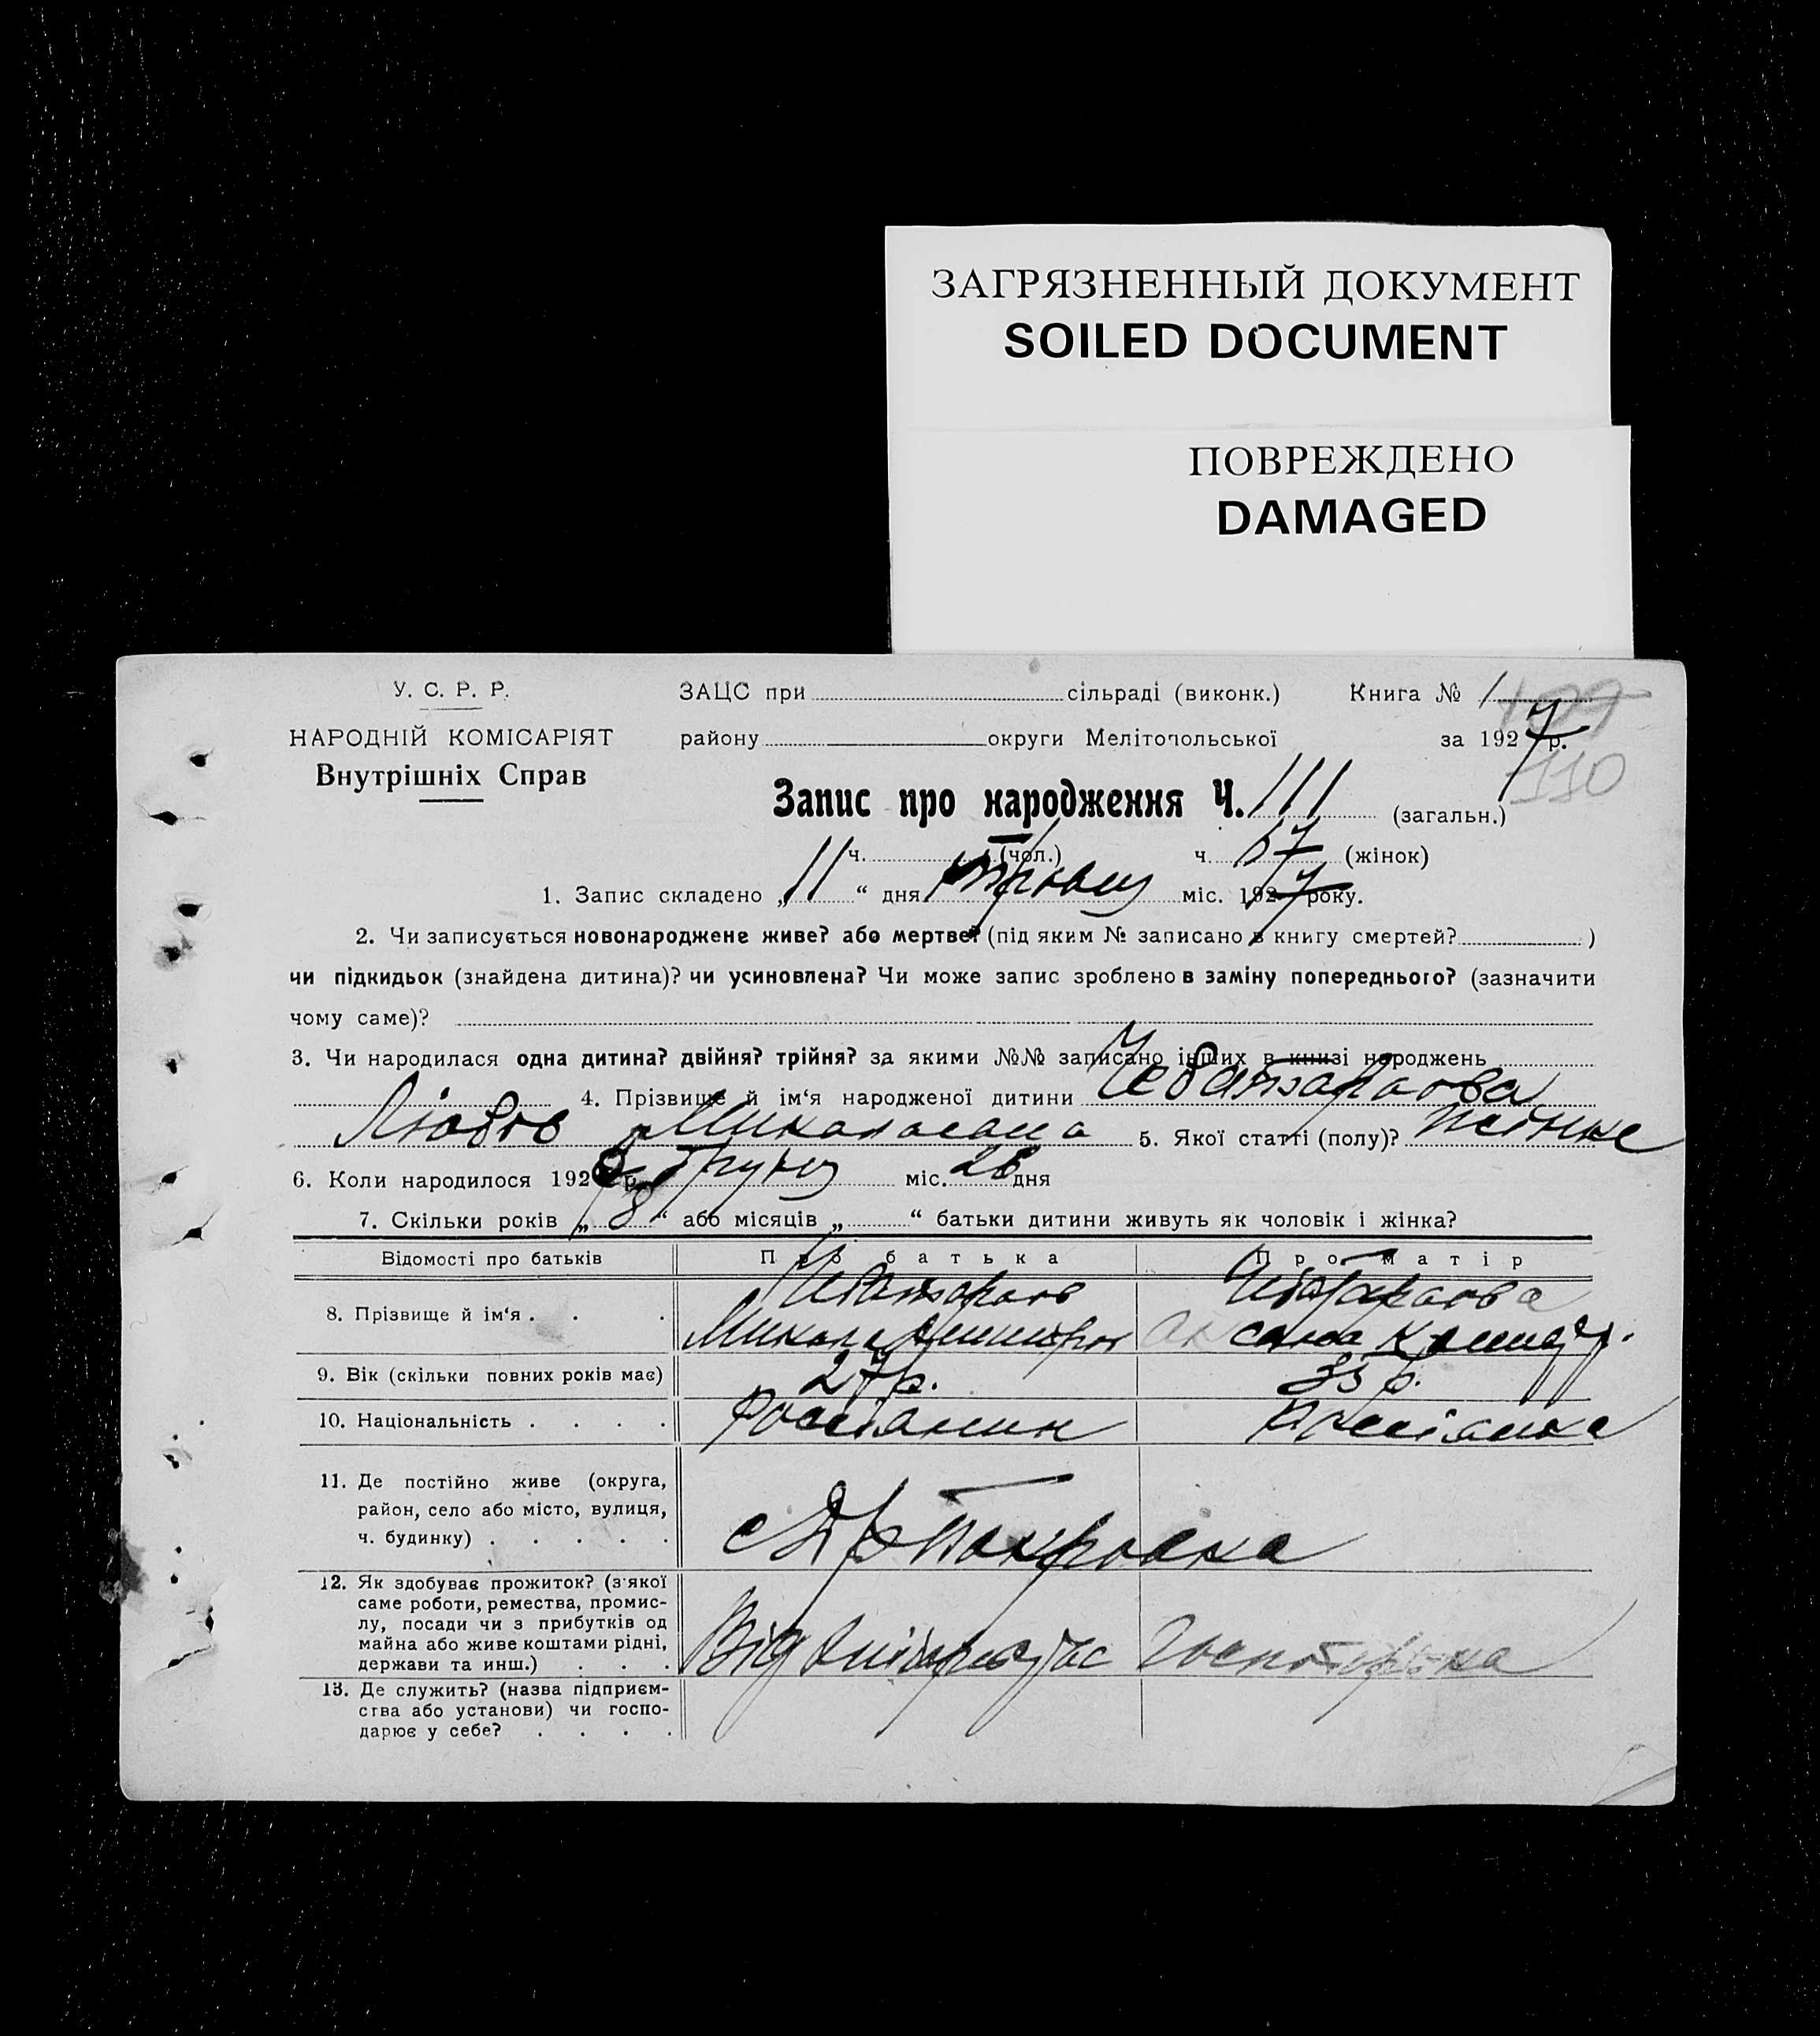 ЗАГРЯЗНЕННЫЙ ДОКУМЕНТ
SOILED DOCUMENT
ПОВРЕЖДЕНО
DAMAGED
У. С. Р. Р.
НАРОДНІЙ КОМІСАРІЯТ
Внутрішніх Справ
ЗАЦС при сільраді (виконк.) Книга № 1
району округи Мелітопольської за 1927 р.
110
Запис про народження Ч. 111 (загальн.)
ч. (чол.) ч. 57 (жінок)
1. Запис складено „11“ дня міс. 1927 року.
2. Чи записується новонароджене живе? або мертве? (під яким № записано в книгу смертей? )
чи підкидьок (знайдена дитина)? чи усиновлена? Чи може запис зроблено в заміну попереднього? (зазначити
чому саме)?
3. Чи народилася одна дитина? двійня? трійня? за якими №№ записано інших в книзі народжень
4. Прізвище й ім‘я народженої дитини
Любов Миколаєвна 5. Якої статті (полу)?
6. Коли народилося 192 р. Грудня міс. 26 дня
7. Скільки років „8“ або місяців „ “ батьки дитини живуть як чоловік і жінка?
Відомості про батьків Про батька Про матір
8. Прізвище й ім‘я . . .
Микола
9. Вік (скільки повних років має) 27 р. 35 р.
10. Національність . . . . Россіянин Россіянка
11. Де постійно живе (округа,
район, село або місто, вулиця,
ч. будинку) . . . . .
12. Як здобуває прожиток? (з якої
саме роботи, ремества, промис-
лу, посади чи з прибутків од
майна або живе коштами рідні,
держави та инш.) . . .
Від
13. Де служить? (назва підприєм-
ства або установи) чи госпо-
дарює у себе? . . . .